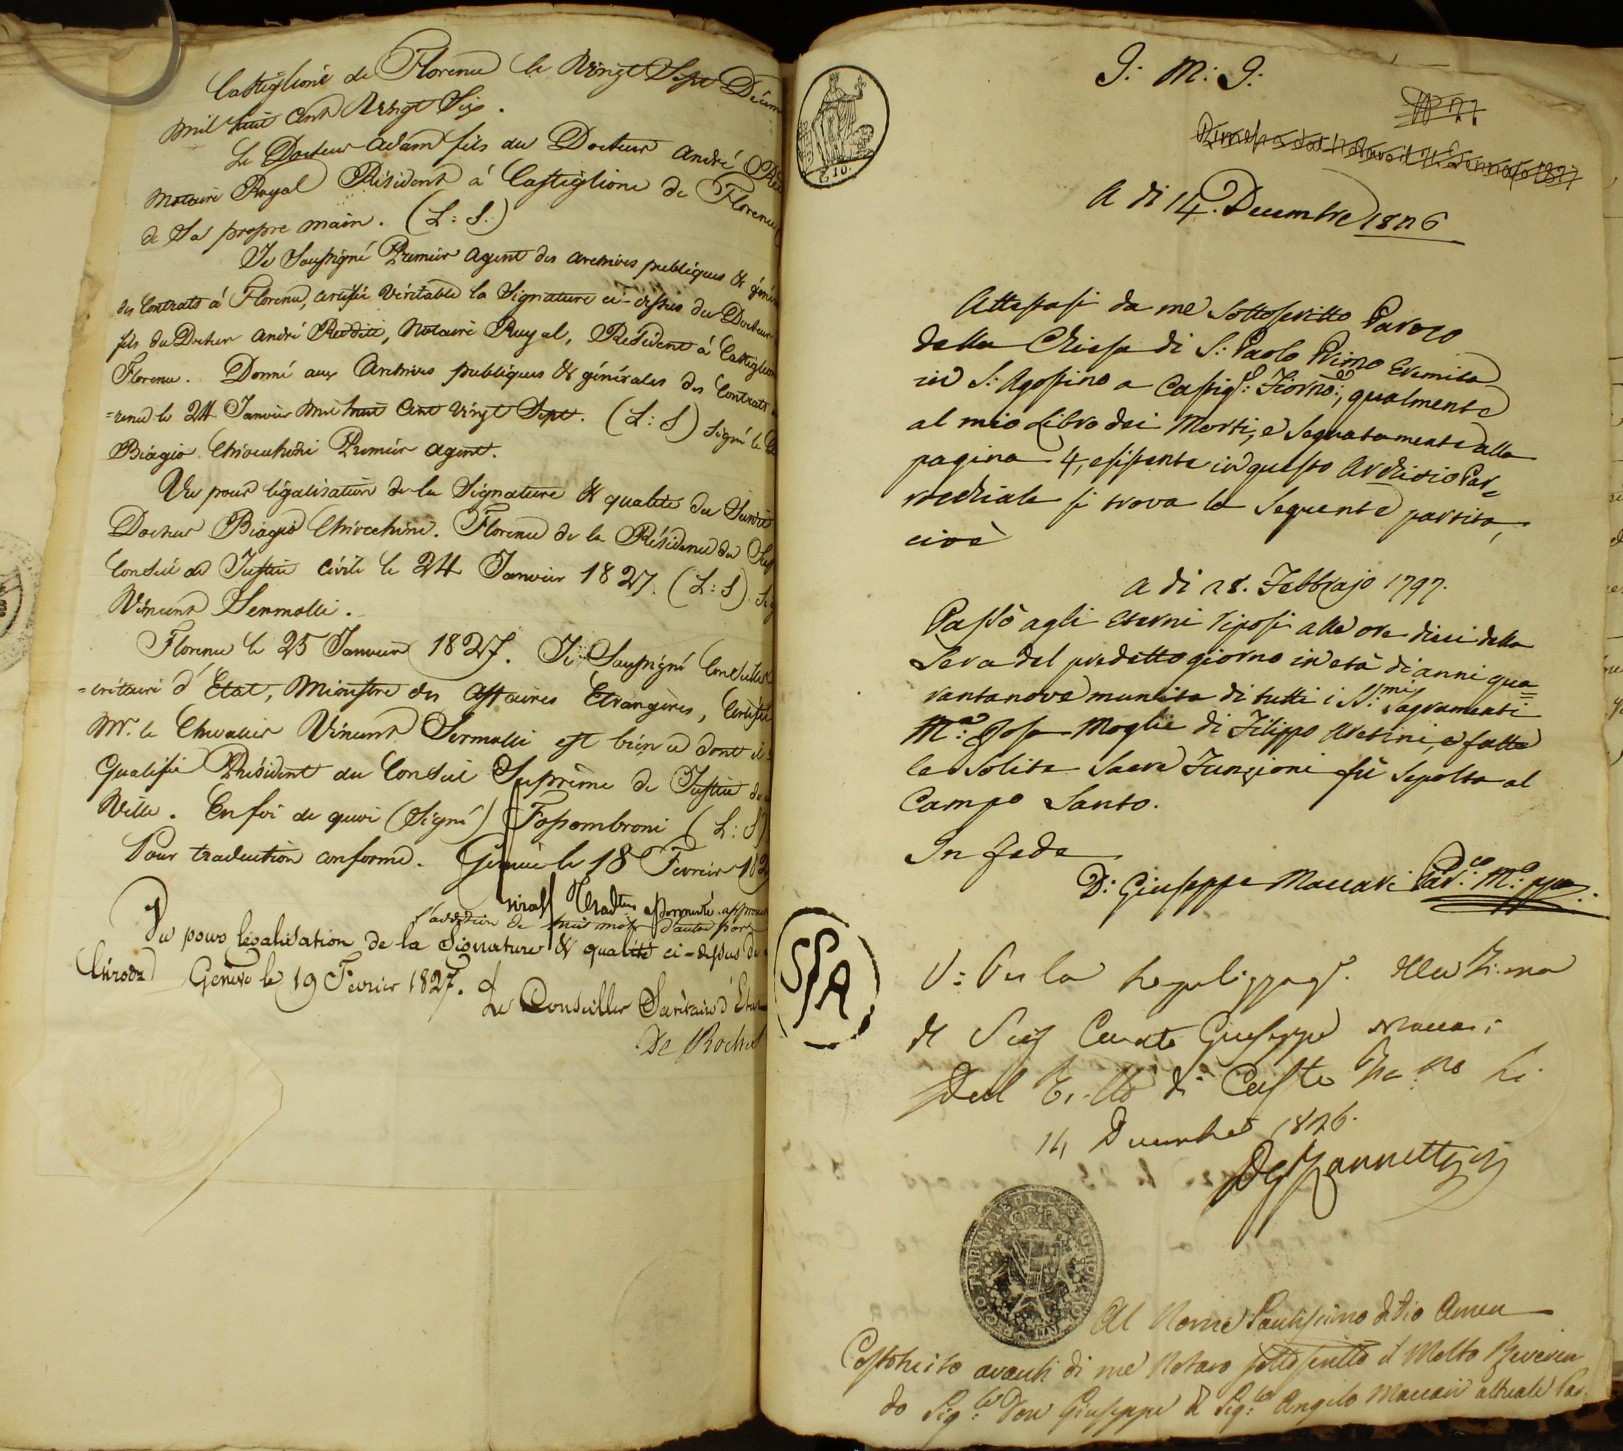 Castiglione de Florence le Vingt Sept Décem
mil huit Cent Vingt Six.
Le Docteur Adam fils du Docteur André
Notaire Royal Résident à Castiglione de Florence
de Sa propre main. (L: S:)
Je Soussigné Premier Agent des Archives publiques & géné
des Contrats à Florence, certifie Véritable la Signature ci-dessus du Docteur
fils du Docteur André Redditi, Notaire Royal, Résident à Castiglion
Florence. Donné aux Archives publiques & générales des Contrats
=rence le 24 Janvier mil huit Cent Vingt Sept. (L: S) Signé le
Biagio Chiocchini Premier Agent.
Vu pour légalisation de la Signature & qualité du Susdit
Docteur Biagio Chiocchini. Florence de la Résidence du
Conseil de Justice Civile le 24 Janvier 1827. (L: S). Sig
Vincent Sermolli.
Florence le 25 Janvier 1827. Je Soussigné Conseiller
=crétaire d'Etat, Ministre des Affaires Etrangères, Certifie
Mr. le Chevalier Vincent Sermolli est bien ce dont il
qualifie Président du Conseil Suprême de Justice de
Ville. En foi de quoi (Signé) Fossombroni (L: S)
Pour traduction conforme. Genève le 18 Février 182
l'addition de huit mots d'autre part
Vu pour légalisation de la Signature & qualité ci-dessus de
Genève le 19 Février 1827. Le Conseiller Secrétaire d'Etat
De Roches
J: M: J:
A di 14. Decembre 1826
Attestasi da me Sottoscritto Paroco
della Chiesa di S: Paolo Primo Eremita
in S: Agostino a Castigl: Fiorno:, qualmente
al mio Libro dei Morti, e Segnatamente alla
pagina 4, esistente in questo Archivio Par=
rochiale si trova la Seguente partita,
cioè
A di 28. Febbrajo 1797.
Passò agli Eterni riposi alle ore dieci della
Sera del predetto giorno in età di anni qua=
rantanove munita di tutti i SS:mi Sagramenti
Ma: Rosa Moglie di Filippo Aretini, e fatte
le Solite Sacre Funzioni fù Sepolta al
Campo Santo.
In fede
D: Giuseppe Maccari Par:co Mo: ppa.
SPA
V: Per la Legalizzaze: della Firma
del Sigr Curato Giuseppe Maccari
Dal Trible di Casto Fno: Li
14 Decembre 1826.
Al Nome Santissimo di Dio Amen
Costituito avanti di me Notaro sottoscritto il Molto Reveren
do Sig:re Don Giuseppe del Sig:re Angelo Maccari attuale Par